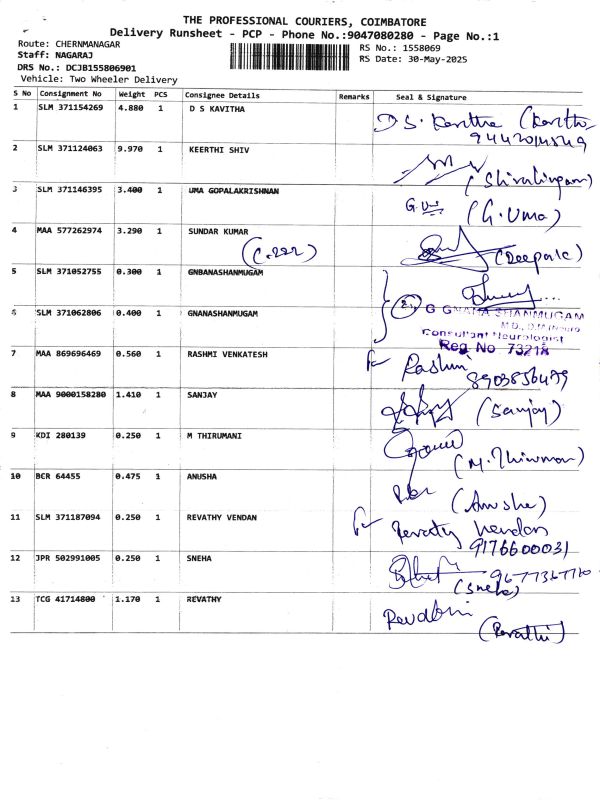 THE PROFESSIONAL COURIERS, COIMBATORE
Delivery Runsheet - PCP - Phone No.:9047080280 - Page No.:1
Route: CHERNMANAGAR
Staff: NAGARAJ
RS No.: 1558069
RS Date: 30-May-2025
DRS No.: DCJB155806901
Vehicle: Two Wheeler Delivery
S No Consignment No Weight PCS Consignee Details Remarks Seal & Signature
1 SLM 371154269 4.880 1 D S KAVITHA D.S. Kavitha (Kavitha
2 SLM 371124063 9.970 1 KEERTHI SHIV (Shivalingam)
3 SLM 371146395 3.400 1 UMA GOPALAKRISHNAN (G.Uma)
4 MAA 577262974 3.290 1 SUNDAR KUMAR (Deepak)
5 SLM 371052755 0.300 1 GNBANASHANMUGAM
6 SLM 371062806 0.400 1 GNANASHANMUGAM G GNANA SHANMUGAM
Consultant Neurologist
Reg No 73218
7 MAA 869696469 0.560 1 RASHMI VENKATESH Rashmi
8903856499
8 MAA 9000158280 1.410 1 SANJAY (Sanjay)
9 KDI 280139 0.250 1 M THIRUMANI
10 BCR 64455 0.475 1 ANUSHA (Anusha)
11 SLM 371187094 0.250 1 REVATHY VENDAN Revathy Vendan
9176600031
12 JPR 502991005 0.250 1 SNEHA
(Sneha)
13 TCG 41714800 1.170 1 REVATHY
(Revathi)